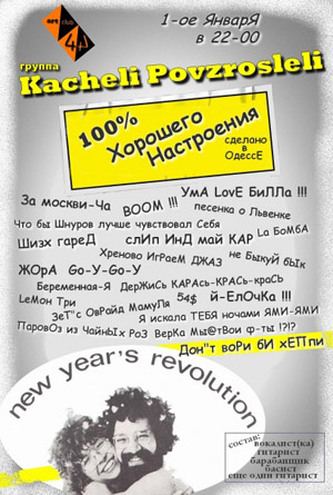 art club
44
1-ое ЯнварЯ
в 22-00
группа
Kacheli Povzrosleli
100%
Хорошего
Настроения
сделано
в
ОдессЕ
За москви-Ча
BOOM !!!
УмА LovE БиЛЛа !!!
песенка о Львенке
Что бы Шнуров лучше чувствовал Себя
Шизх гареД
слИп ИнД май КАР
La БоМбА
Хреново ИГРаеМ ДЖАЗ
не Быкуй бЫк
ЖОрА Go-У-Go-У
Беременная-Я
ДерЖиСь КАРАсь-КРАСь-краСЬ
LeMoн Tpи
ЗеТ"с ОвРайд МамуЛя
54$
й-ЕлОчКа !!!
Я искала ТЕБЯ ночами ЯМИ-ЯМИ
ПаровОз из ЧайнЫх РоЗ
ВерКа Мы@тВои ф-ты !?!?
Дон"т воРи бИ хЕППи
new year's revolution
состав:
вокалист(ка)
гитарист
барабанщик
басист
еще один гитарист